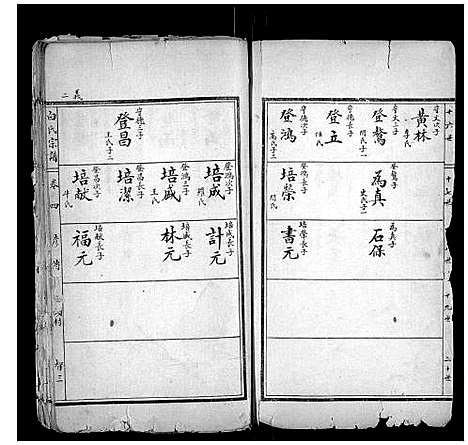 十六世
守文次子
黃林
李氏
守文三子
登鰲
閆氏子一
守德長子
登五
任氏
守德次子
登鴻
高氏子三
十七世
登鰲子
為真
史氏子一
登鴻長子
培榮
閆氏
為真子
石保
培榮長子
書元
十九世
二十世
義二
守德三子
登昌
王氏子二
登鴻次子
培成
羅氏
登鴻三子
培盛
王氏
登昌長子
培潔
登昌次子
培献
牛氏
培成長子
計元
培盛長子
林元
培献長子
福元
白氏宗譜
卷四